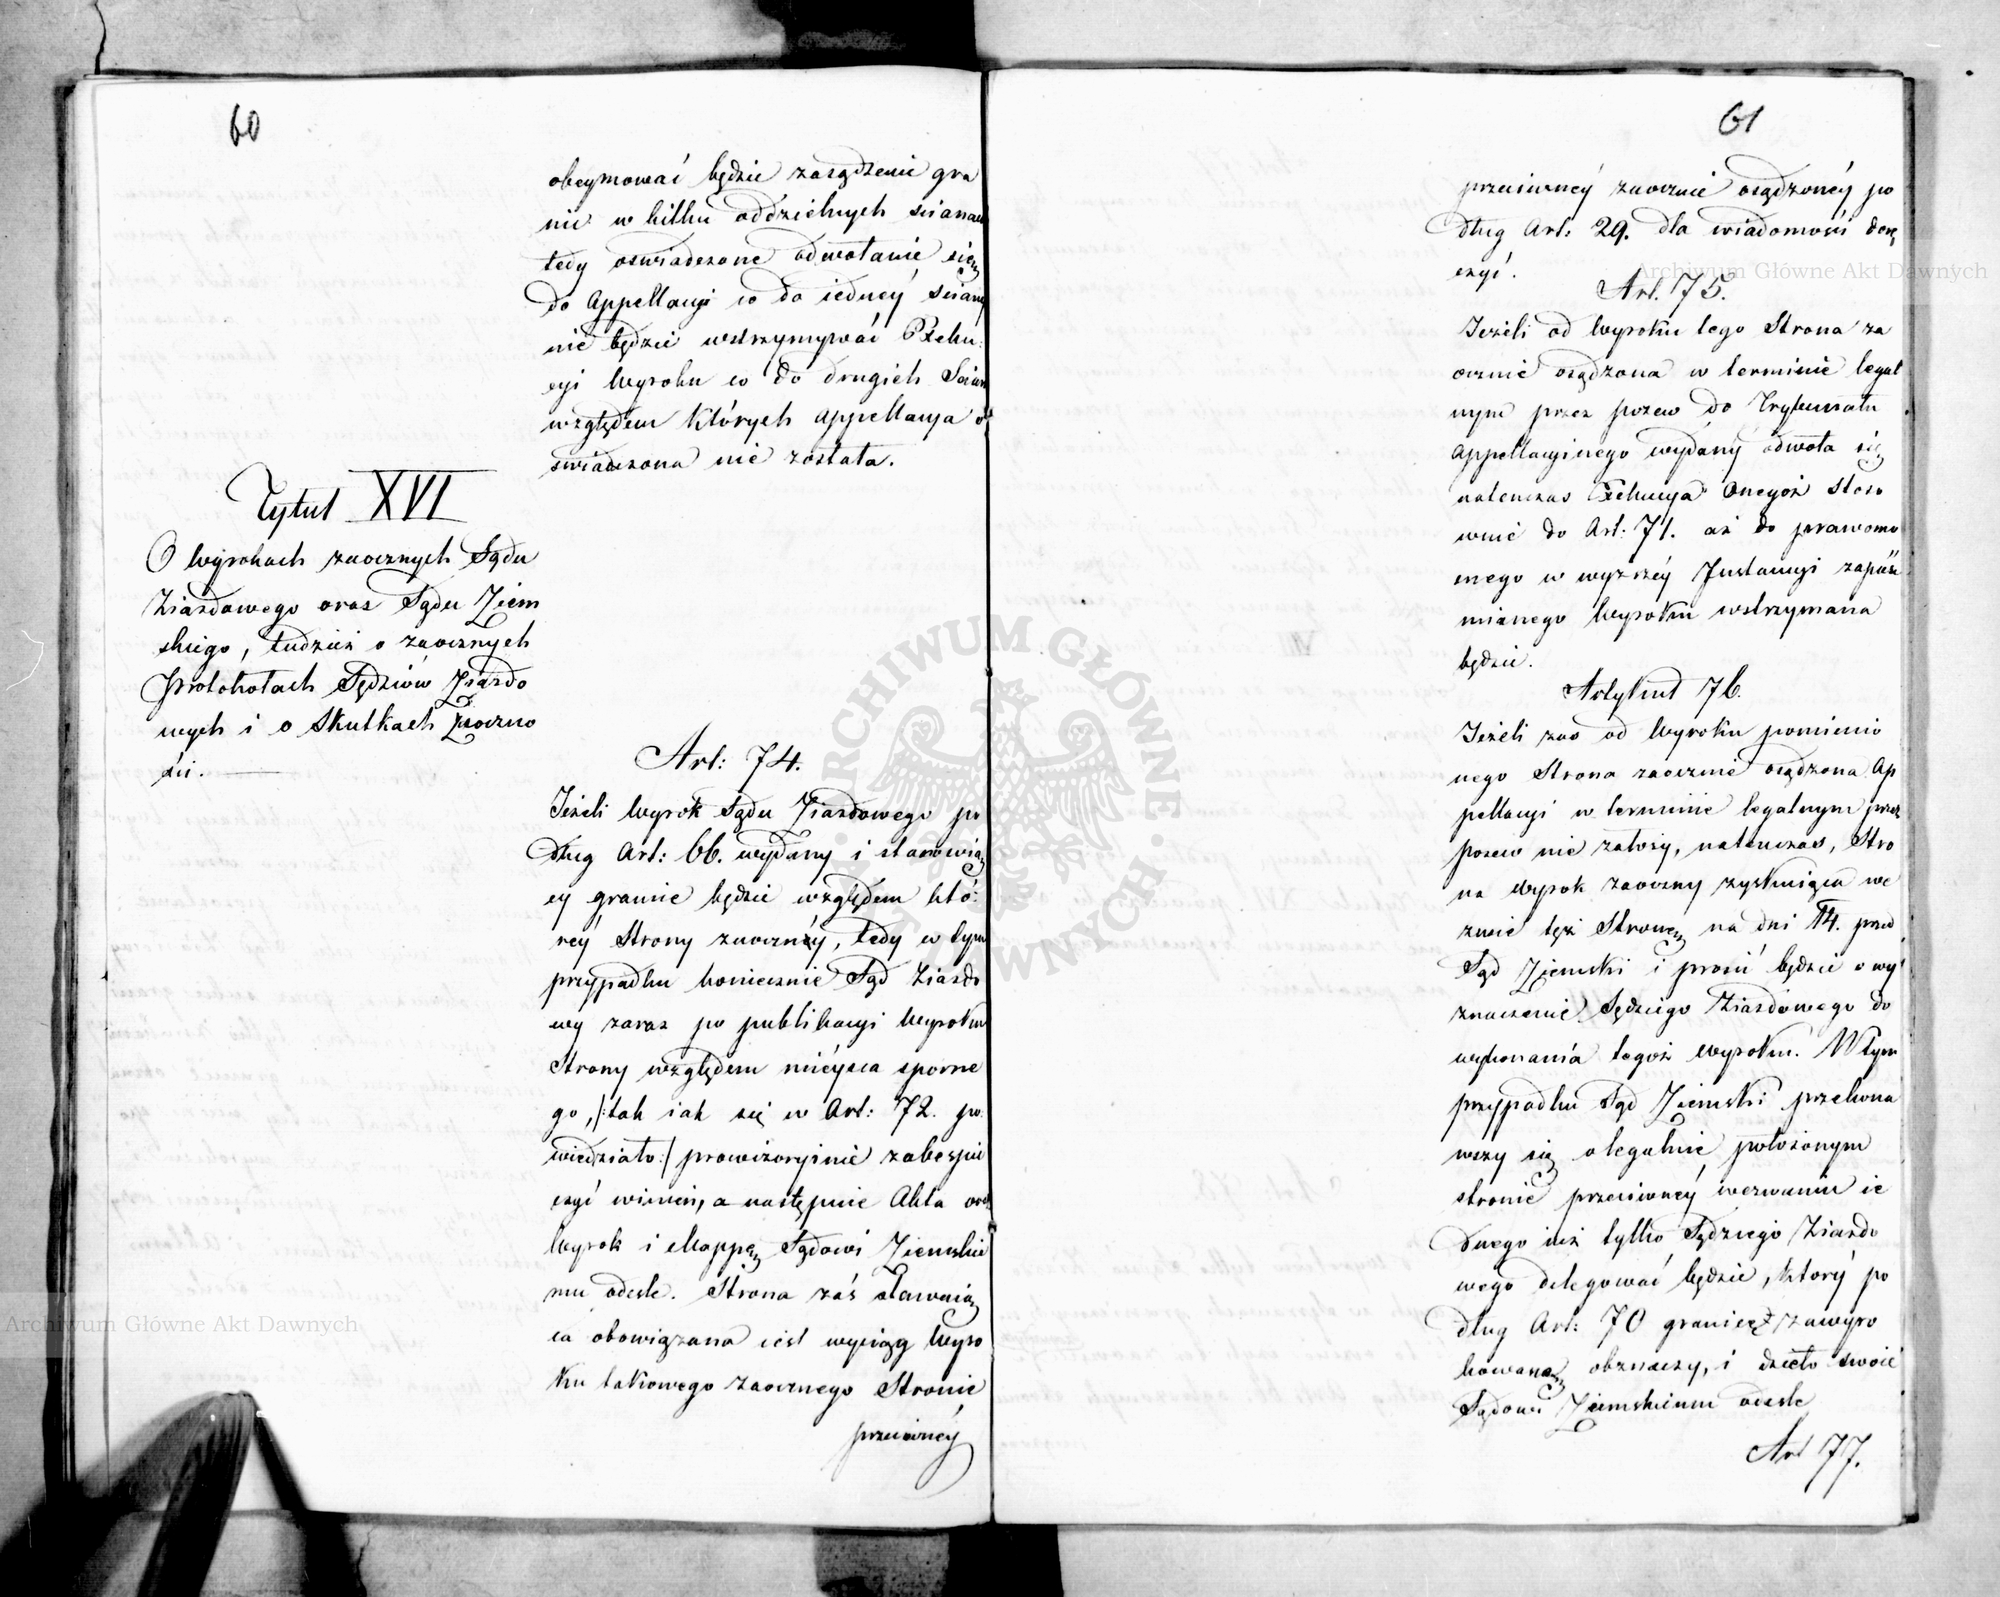 60
obeymować będzie zasądzenie gra
nic w kilku oddzielnych scianach
tedy oswiadczone odwołanie się
do Appellacyi co do iednéy Sciany
nie będzie wstrzymywać Exeku:
cyi Wyroku co do drugich Scian
względem których Appellacya o
swiadczona nie została.
Tytuł XVI
O Wyrokach zaocznych Sądu
Ziazdowego oraz Sądu Ziem
skiego, tudzież o zaocznych
Protokołach Sędziów Ziazdo
wych i o Skutkach Zaoczno
ści.
Art: 74.
Jeżeli Wyrok Sądu Ziazdowego po
dług Art: 66. wydany i stanowią
cy granice będzie względem któ:
réy Strony zaoczny, tedy w tym
przypadku koniecznie Sąd Ziazdo
wy zaraz po publikacyi Wyroku
Strony względem mieysca sporne
go, /:tak iak się w Art: 72. po
wiedziało:/ prowizoryinie zabespie
czyć winien, a następnie Akta oraz
Wyrok i Mappę Sądowi Ziemskie
mu odeśle. Strona zaś stawaią
ca obowiązana iest wyciąg Wyro
ku takowego zaocznego Stronie
przeciwnéy
61
przeciwnéy zaocznie osądzonéy po
dług Art: 29. dla wiadomości dorę
czyć.
Art. 75.
Jeżeli od Wyroku tego Strona za
ocznie osądzona w terminie legal
nym przez pozew do Trybunału
Appellacyinego wydany odwoła się
natenczas Exekucya onegoż stoso
wnie do Art: 71. aż do prawomo
cnego w wyższéy Instancyi zapaść
mianego Wyroku wstrzymana
będzie.
Artykuł 76.
Jeżeli zas od Wyroku pomienio
nego Strona zaocznie osądzona Ap
pellacyi w terminie legalnym przez
pozew nie założy, natenczas, Stro
na Wyrok zaoczny zyskuiąca we
zwie tęż Stronę na dni 14. przed
Sąd Ziemski i prosić będzie o wy
znaczenie Sędziego Ziazdowego do
wykonania tegoż Wyroku. W tym
przypadku Sąd Ziemski przekona
wszy się o legalnie położonym
stronie przeciwnéy wezwaniu ie
dnego iuż tylko Sędziego Ziazdo
wego delegować będzie, który po
dług Art: 70 granicę zawyro
kowaną obznaczy, i dzieło swoie
Sądowi Ziemskiemu odeśle
Art 77.
Archiwum Główne Akt Dawnych
Archiwum Główne Akt Dawnych
ARCHIWUM GŁÓWNE AKT DAWNYCH